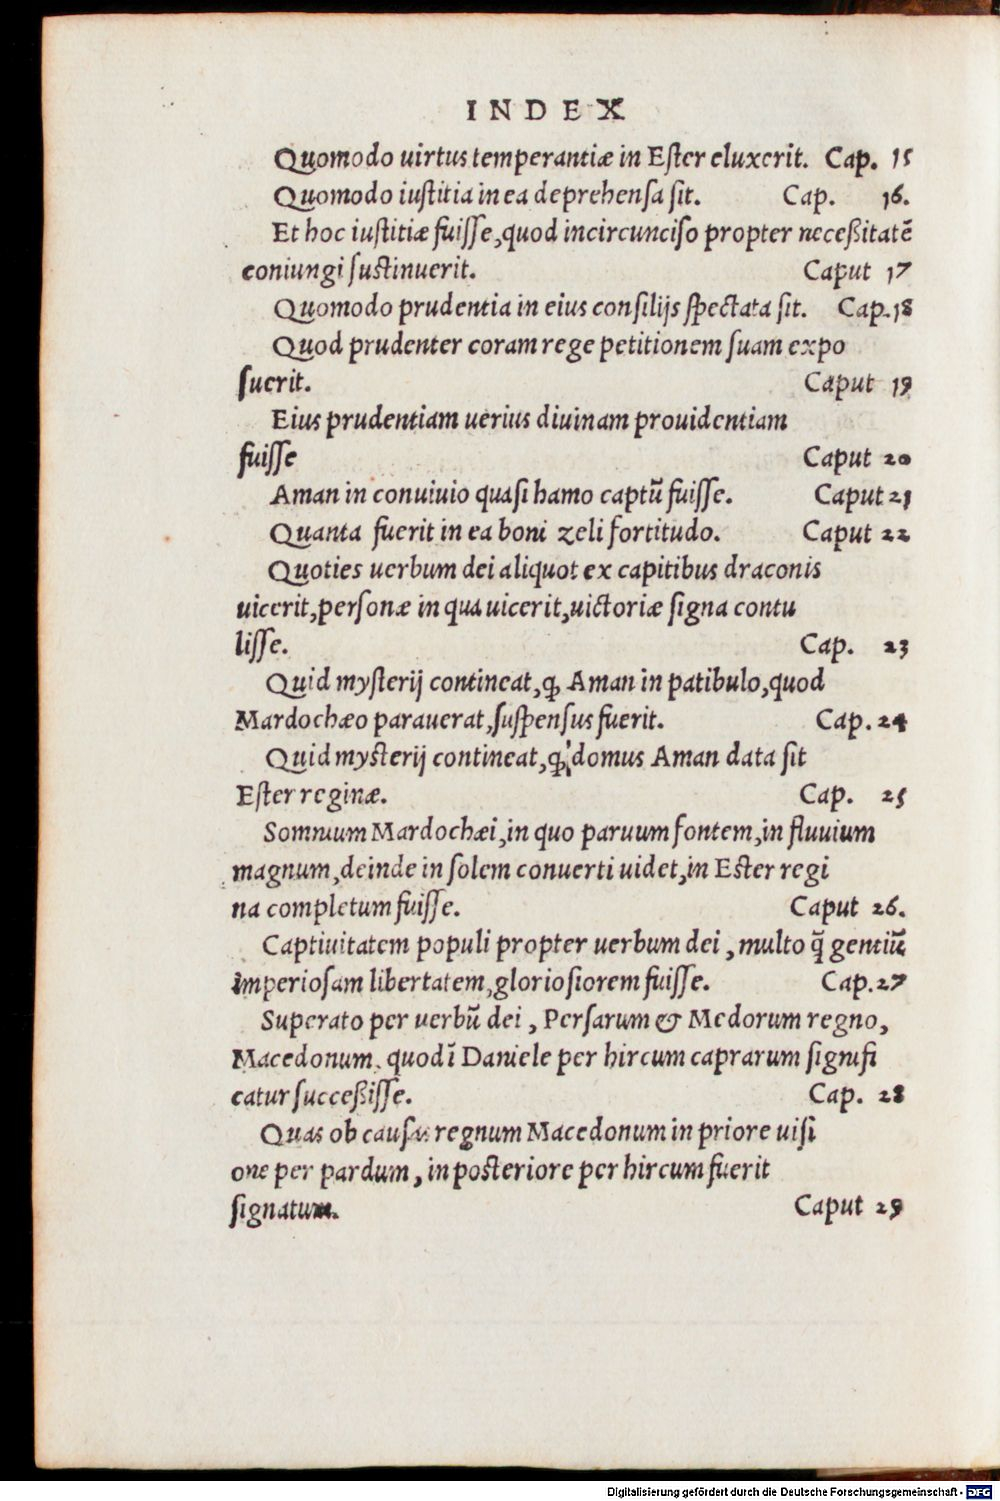 INDEX
Quomodo uirtus temperantiæ in Ester eluxerit. Cap. 15
Quomodo iustitia in ea deprehensa sit. Cap. 16.
Et hoc iustitiæ fuisse, quod incirunciso propter necessitatē
coniungi sustinuerit. Caput 17
Quomodo prudentia in eius consilijs spectata sit. Cap. 18
Quod prudenter coram rege petitionem suam expo
suerit. Caput 19
Eius prudentiam uerius diuinam prouidentiam
fuisse Caput 20
Aman in conuiuio quasi hamo captū fuisse. Caput 21
Quanta fuerit in ea boni zeli fortitudo. Caput 22
Quoties uerbum dei aliquot ex capitibus draconis
uicerit, personæ in qua uicerit, uictoriæ signa contu
lisse. Cap. 23
Quid mysterij contineat, ꝙ Aman in patibulo, quod
Mardochæo parauerat, suspensus fuerit. Cap. 24
Quid mysterij contineat, ꝙ domus Aman data sit
Ester reginæ. Cap. 25
Somnium Mardochæi, in quo paruum fontem, in fluuium
magnum, deinde in solem conuerti uidet, in Ester regi
na completum fuisse. Caput 26.
Captiuitatem populi propter uerbum dei, multo q̄ gentiū
imperiosam libertatem, gloriosiorem fuisse. Cap. 27
Superato per uerbū dei, Persarum & Medorum regno,
Macedonum, quod ī Daniele per hircum caprarum signifi
catur successisse. Cap. 28
Quas ob causas regnum Macedonum in priore uisi
one per pardum, in posteriore per hircum fuerit
signatum. Caput 29
Digitalisierung gefördert durch die Deutsche Forschungsgemeinschaft - DFG